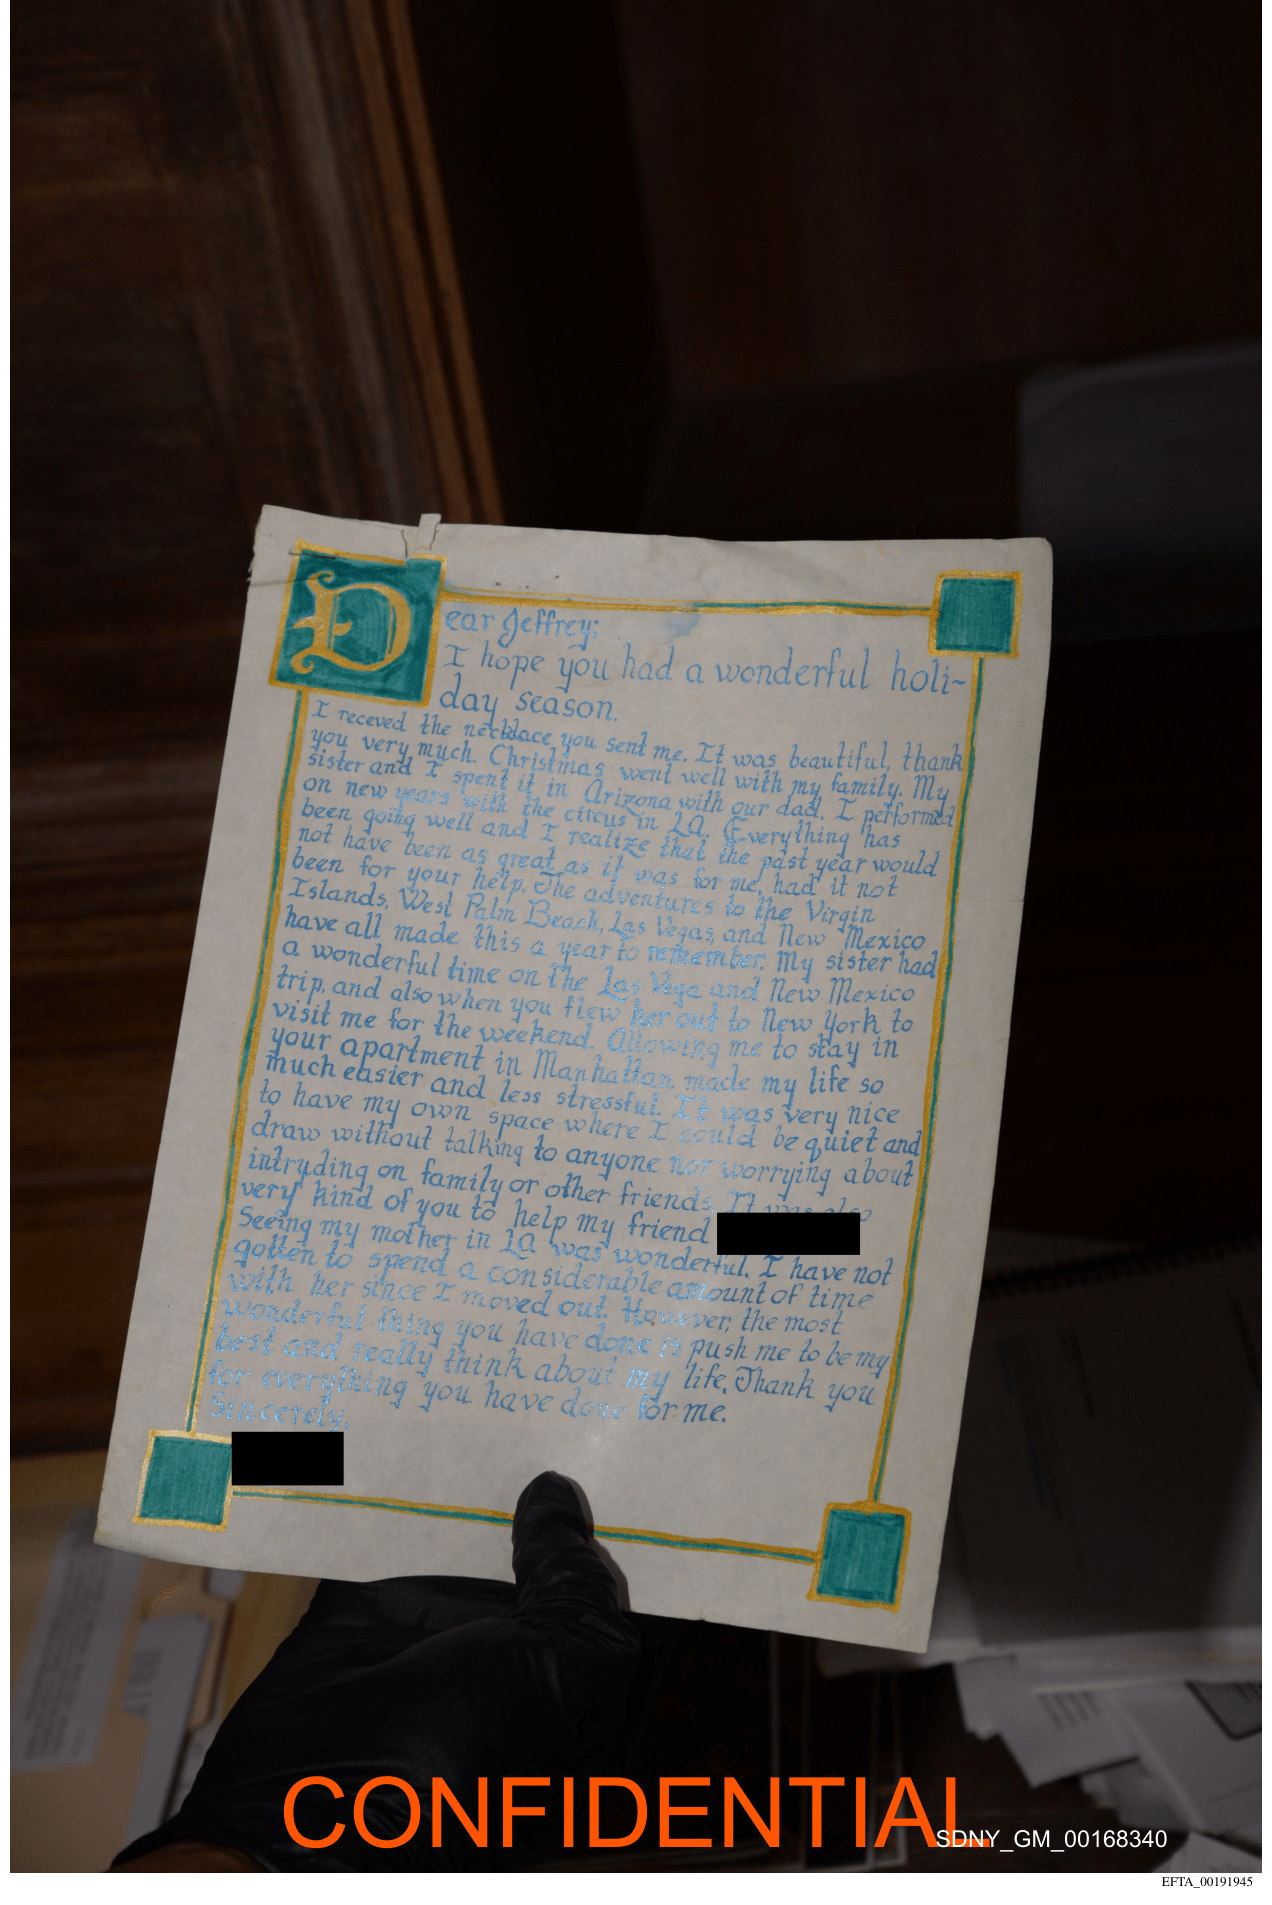 Dear Jeffrey;
I hope you had a wonderful holi~
day season.
I receved the necklace you sent me. It was beautiful, thank
you very much. Christmas went well with my family. My
sister and I spent it in Arizona with our dad. I performed
on new years with the circus in LA. Everything has
been going well and I realize that the past year would
not have been as great as it was for me, had it not
been for your help. The adventures to the Virgin
Islands, West Palm Beach, Las Vegas, and New Mexico
have all made this a year to remember. My sister had
a wonderful time on the Las Vega and New Mexico
trip, and also when you flew her out to New York to
visit me for the weekend. Allowing me to stay in
your apartment in Manhattan made my life so
much easier and less stressful. It was very nice
to have my own space where I could be quiet and
draw without talking to anyone nor worrying about
intryding on family or other friends. It was also
very kind of you to help my friend
Seeing my mother in LA was wonderful. I have not
gotten to spend a considerable amount of time
with her since I moved out. However, the most
wonderful thing you have done is push me to be my
best and really think about my life. Thank you
for everything you have done for me.
Sincerely,
CONFIDENTIAL
SDNY_GM_00168340
EFTA_00191945